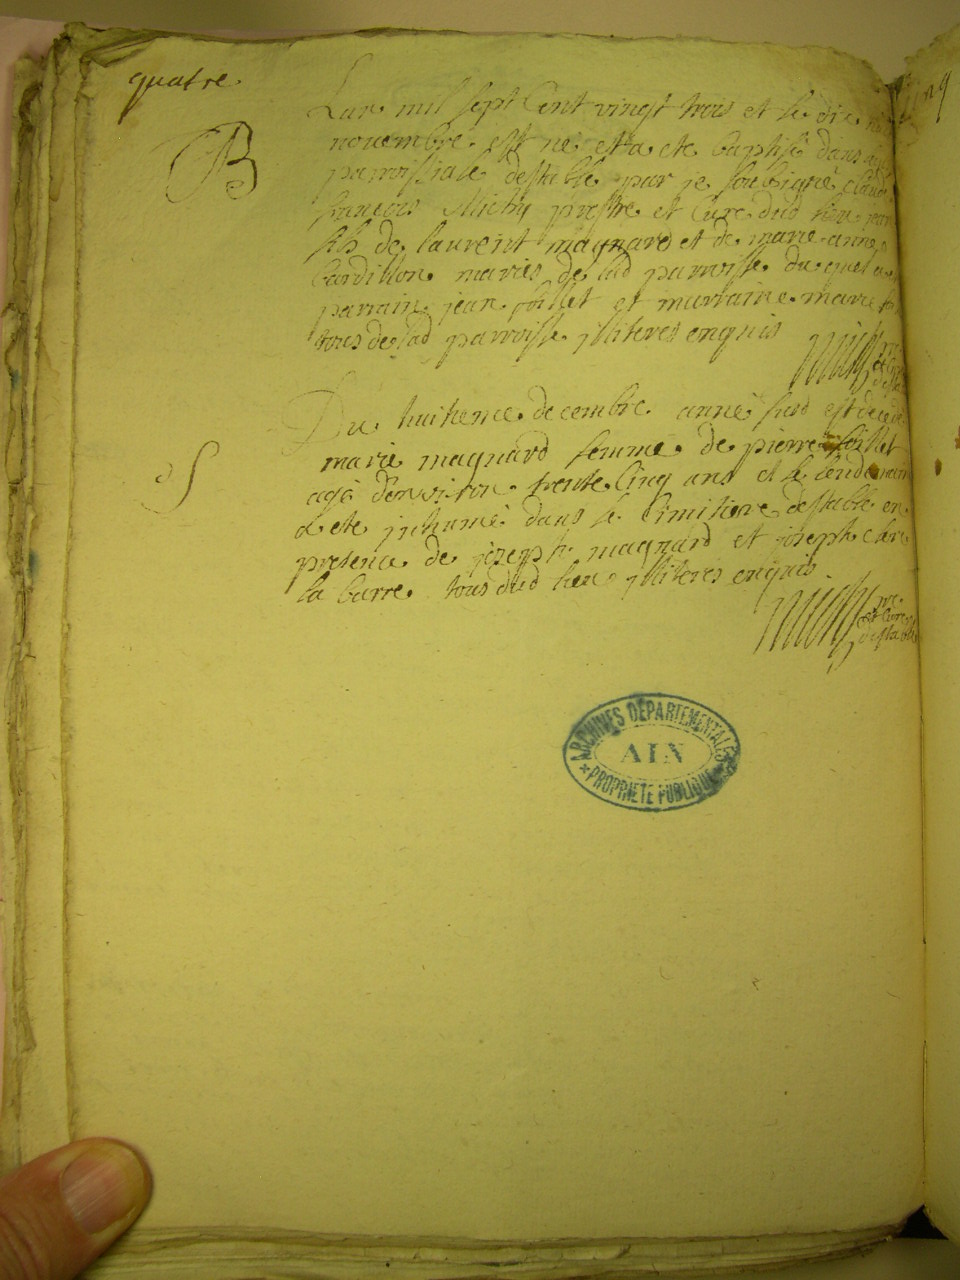 quatre
B
Lan mil sept Cent vingt trois et le dix
nouembre est né et a ete baptisé dans
parroissiale destable par je soubsigné claude
francois Michy prestre et Curé dud lieu jean
fils de laurent magnard et de marie anne
Cardillon mariés de lad parroisse du quel a
parrain jean follet et marraine marie
tous de lad parroisse jlliteres enquis
S
Du huitieme decembre année susd est decede
marie magnard femme de pierre follet
agé d'environ trente Cinq ans et le lendemain
a ete jnhumé dans le Cimitiere destable en
presence de joseph magnard et joseph clerc
la barre tous dud lieu jlliteres enquis
pre
et Curé
destable
ARCHIVES DÉPARTEMENTALES
AIN
PROPRIÉTÉ PUBLIQUE